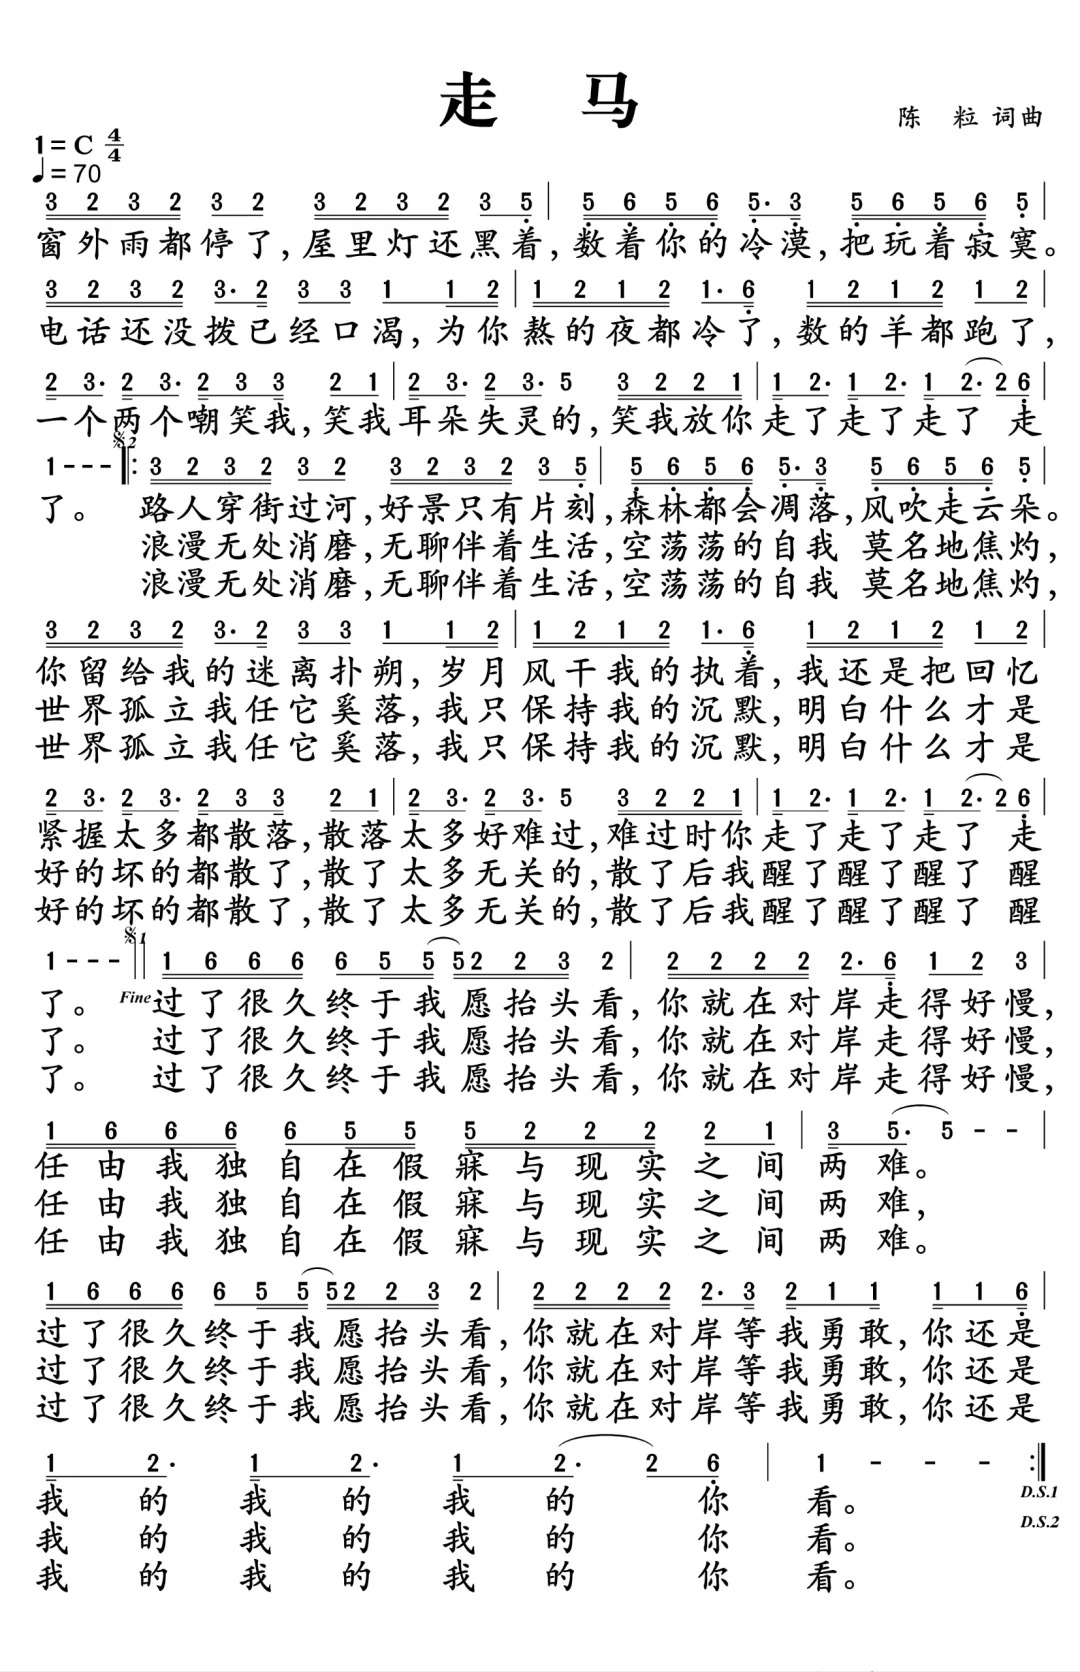 走 马
陈 粒 词曲
1=C 4/4
♩=70
3 2 3 2 3 2 3 2 3 2 3 5 | 5 6 5 6 5· 3 5 6 5 6 5 |
窗外雨都停了,屋里灯还黑着,数着你的冷漠,把玩着寂寞。
3 2 3 2 3· 2 3 3 1 1 2 | 1 2 1 2 1· 6 1 2 1 2 1 2 |
电话还没拨已经口渴,为你熬的夜都冷了,数的羊都跑了,
2 3· 2 3· 2 3 3 2 1 | 2 3· 2 3· 5 3 2 2 1 | 1 2· 1 2· 1 2· 2 6 |
一个两个嘲笑我,笑我耳朵失灵的,笑我放你走了走了走了 走
𝄋2
1 - - - ‖: 3 2 3 2 3 2 3 2 3 2 3 5 | 5 6 5 6 5· 3 5 6 5 6 5 |
了。 路人穿街过河,好景只有片刻,森林都会凋落,风吹走云朵。
浪漫无处消磨,无聊伴着生活,空荡荡的自我 莫名地焦灼,
浪漫无处消磨,无聊伴着生活,空荡荡的自我 莫名地焦灼,
3 2 3 2 3· 2 3 3 1 1 2 | 1 2 1 2 1· 6 1 2 1 2 1 2 |
你留给我的迷离扑朔,岁月风干我的执着,我还是把回忆
世界孤立我任它奚落,我只保持我的沉默,明白什么才是
世界孤立我任它奚落,我只保持我的沉默,明白什么才是
2 3· 2 3· 2 3 3 2 1 | 2 3· 2 3· 5 3 2 2 1 | 1 2· 1 2· 1 2· 2 6 |
紧握太多都散落,散落太多好难过,难过时你走了走了走了 走
好的坏的都散了,散了太多无关的,散了后我醒了醒了醒了 醒
好的坏的都散了,散了太多无关的,散了后我醒了醒了醒了 醒
𝄋1
1 - - - ‖ 1 6 6 6 6 5 5 5 2 2 3 2 | 2 2 2 2 2· 6 1 2 3 |
了。 Fine 过了很久终于我愿抬头看,你就在对岸走得好慢,
了。 过了很久终于我愿抬头看,你就在对岸走得好慢,
了。 过了很久终于我愿抬头看,你就在对岸走得好慢,
1 6 6 6 6 5 5 5 2 2 2 2 1 | 3 5· 5 - - |
任由我独自在假寐与现实之间两难。
任由我独自在假寐与现实之间两难,
任由我独自在假寐与现实之间两难。
1 6 6 6 6 5 5 5 2 2 3 2 | 2 2 2 2 2· 3 2 1 1 1 1 6 |
过了很久终于我愿抬头看,你就在对岸等我勇敢,你还是
过了很久终于我愿抬头看,你就在对岸等我勇敢,你还是
过了很久终于我愿抬头看,你就在对岸等我勇敢,你还是
1 2· 1 2· 1 2· 2 6 | 1 - - - :‖
我的我的我的你看。 D.S.1
D.S.2
我的我的我的你看。
我的我的我的你看。